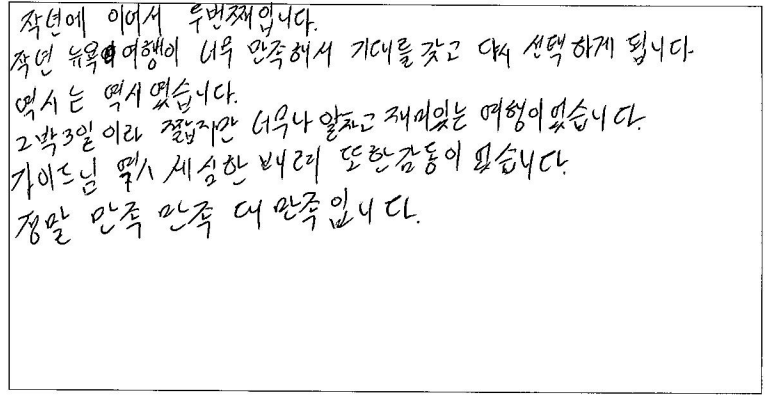 작년에 이어서 두번째입니다.
작년 뉴욕 여행이 너무 만족해서 기대를 갖고 다시 선택하게 됩니다.
역시는 역시였습니다.
2박3일이라 짧지만 너무나 알차고 재미있는 여행이었습니다.
가이드님 역시 세심한 배려 또한 감동이 있습니다.
정말 만족 만족 대 만족입니다.